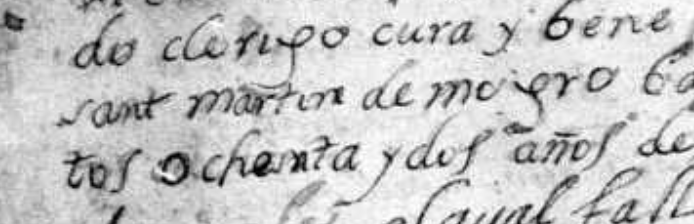 do clerigo cura y bene
sant martin de mogro ba
tos ochenta y dos años de
el qual fall